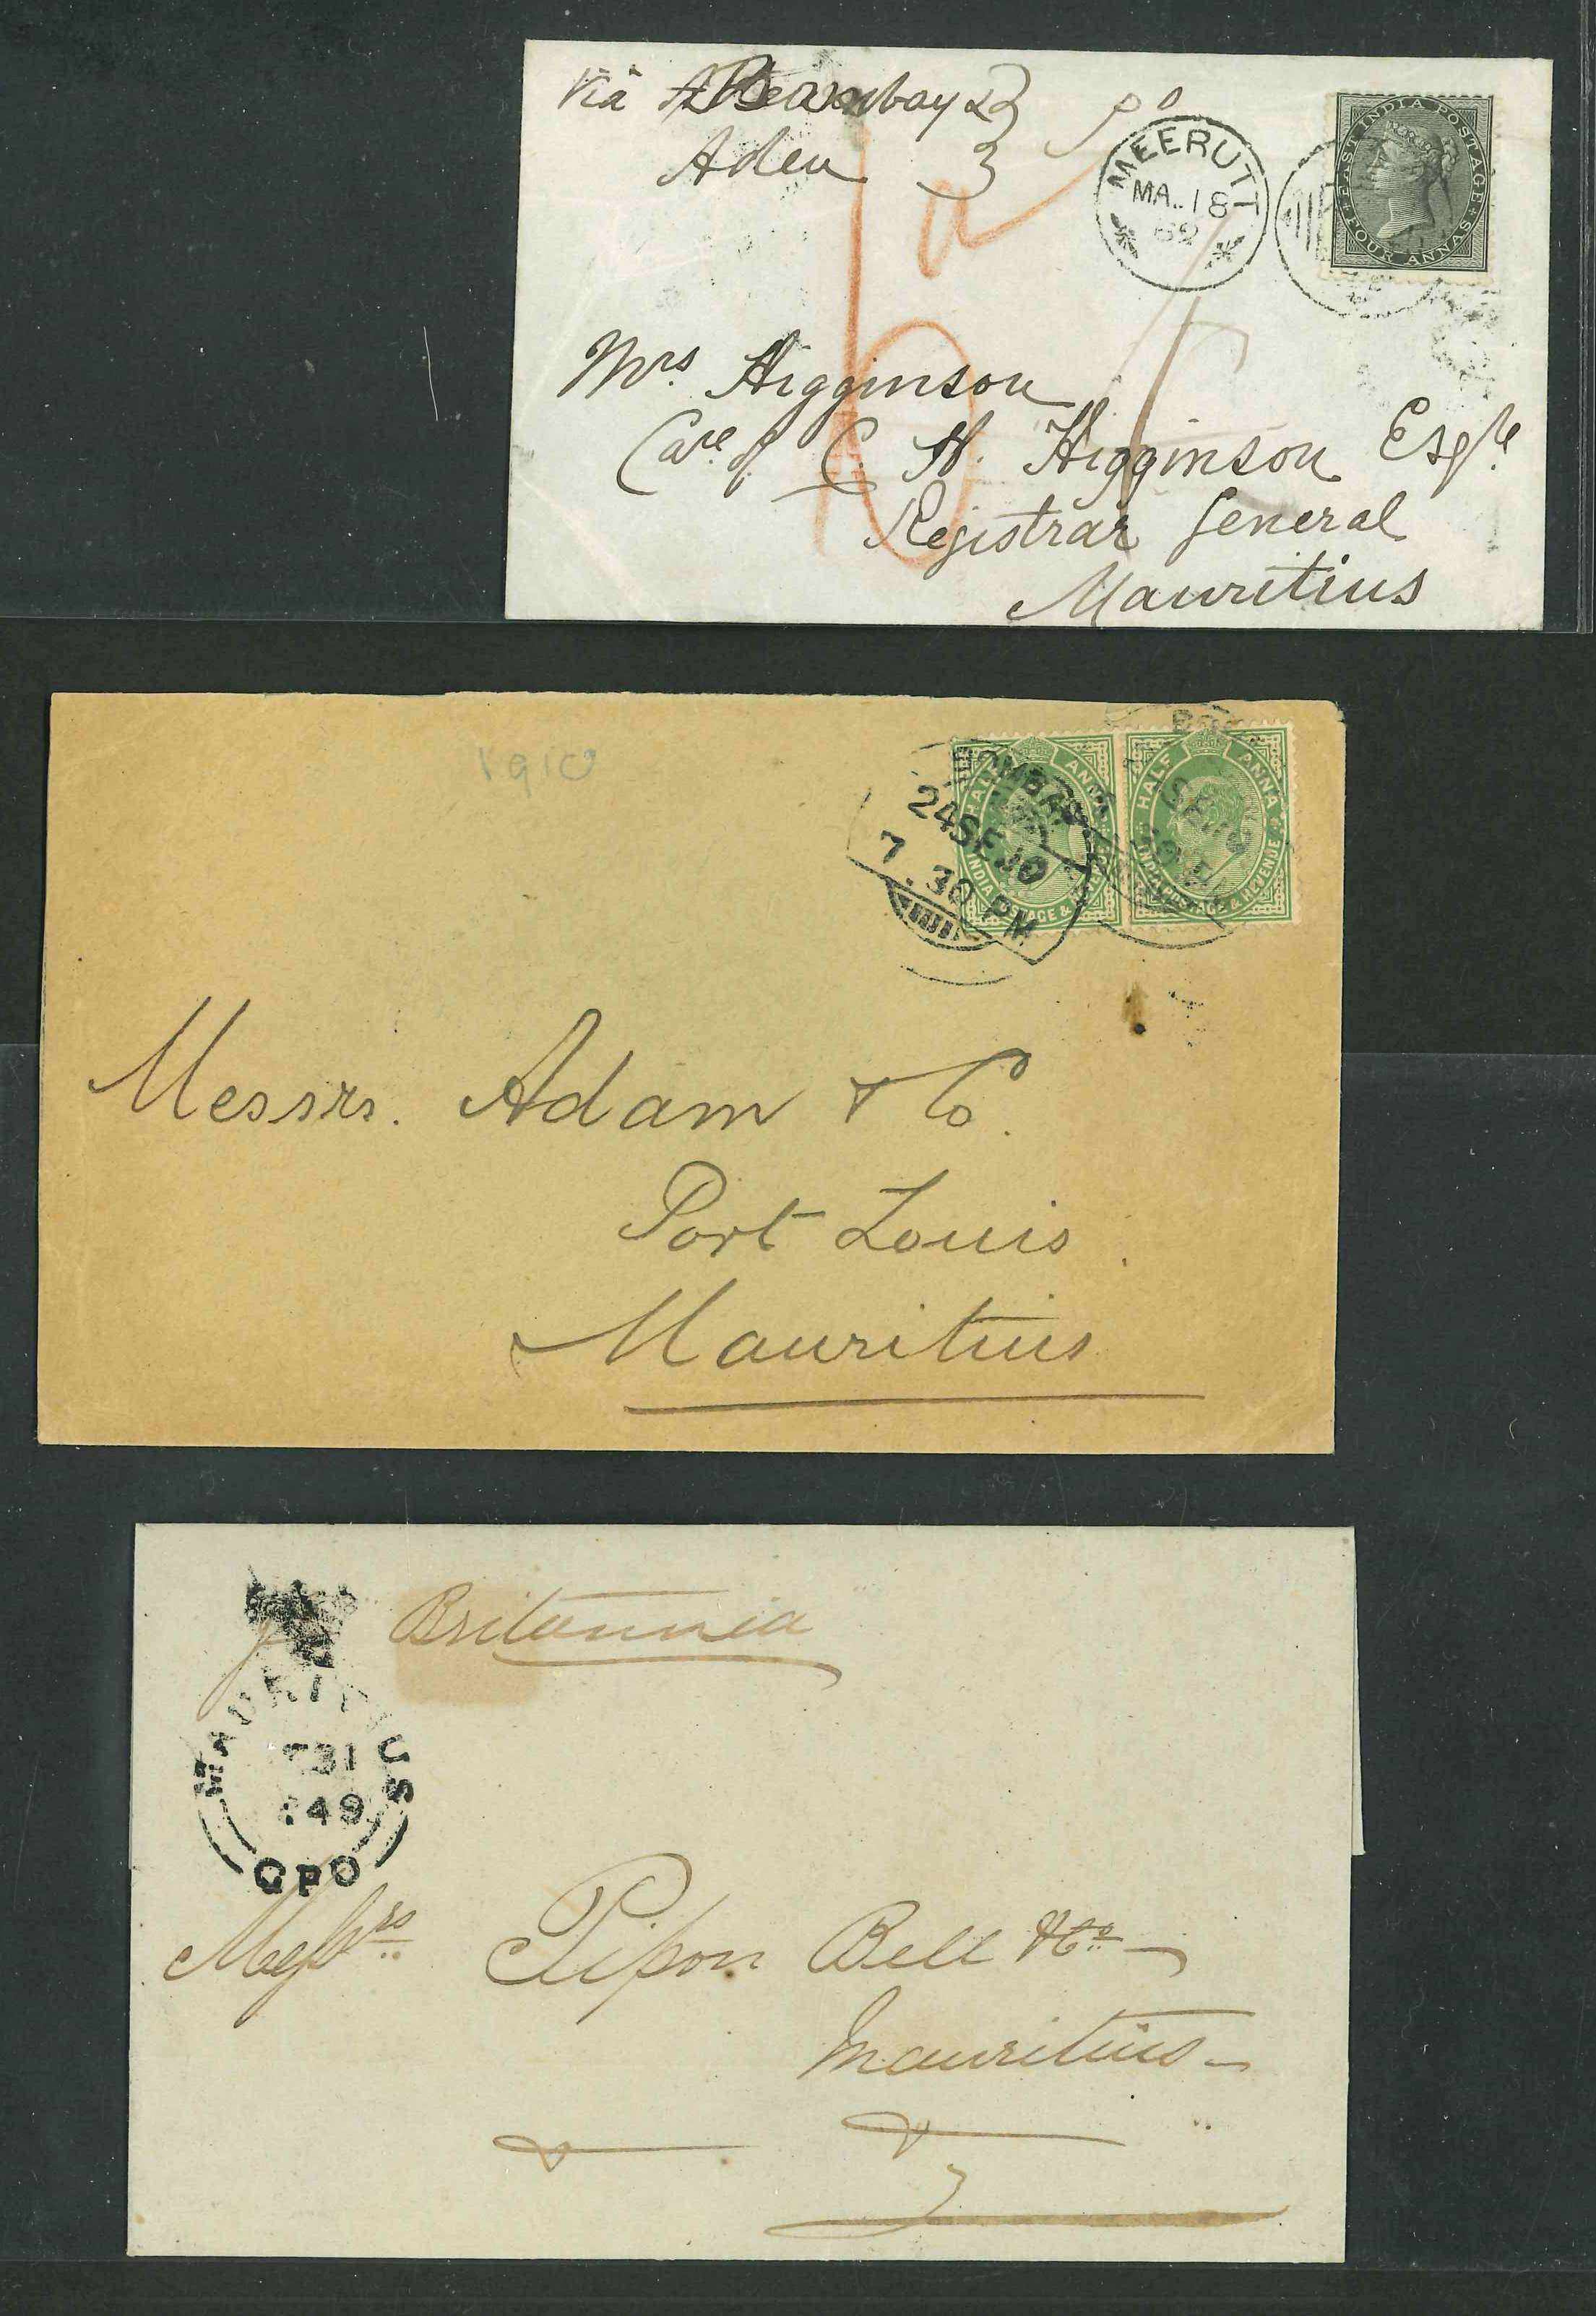 Via Bombay
Aden
MEERUTT
MA. 18
EAST INDIA POSTAGE
FOUR ANNAS
Mrs. Higginson
Care of C. N. Higginson Esqre
Registrar General
Mauritius
1910
BOMBAY
24SE10
7.30 PM
HALF ANNA
INDIA POSTAGE & REVENUE
HALF ANNA
INDIA POSTAGE & REVENUE
Messrs. Adam & Co.
Port Louis.
Mauritius
Britannia
MAURITIUS
31
49
GPO
Messrs Pipon Bell & Co
Mauritius